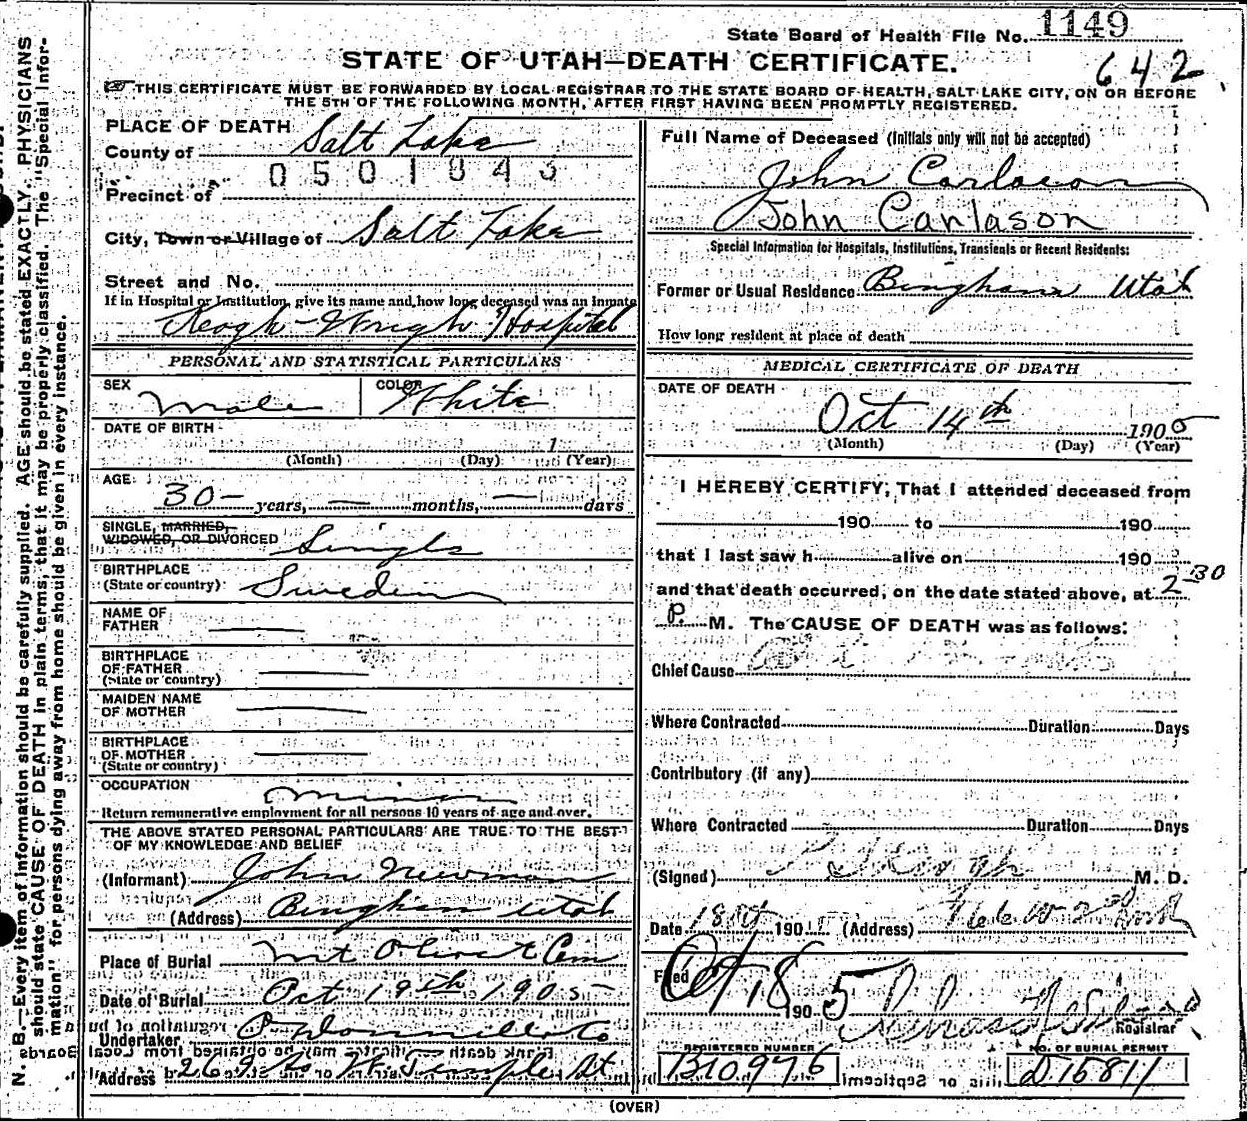 State Board of Health File No. 1149
STATE OF UTAH—DEATH CERTIFICATE.
642
THIS CERTIFICATE MUST BE FORWARDED BY LOCAL REGISTRAR TO THE STATE BOARD OF HEALTH, SALT LAKE CITY, ON OR BEFORE
THE 5TH OF THE FOLLOWING MONTH, AFTER FIRST HAVING BEEN PROMPTLY REGISTERED.
N. B.—Every item of information should be carefully supplied. AGE should be stated EXACTLY. PHYSICIANS
should state CAUSE OF DEATH in plain terms, that it may be properly classified. The "Special Infor-
mation" for persons dying away from home should be given in every instance.
PLACE OF DEATH
County of Salt Lake
0501843
Precinct of
City, Town or Village of Salt Lake
Street and No.
If in Hospital or Institution, give its name and how long deceased was an inmate
Keogh-Wright Hospital
PERSONAL AND STATISTICAL PARTICULARS
SEX Male COLOR White
DATE OF BIRTH
1
(Month) (Day) (Year)
AGE
30 years, — months, — days
SINGLE, MARRIED,
WIDOWED, OR DIVORCED Single
BIRTHPLACE
(State or country) Sweden
NAME OF
FATHER
BIRTHPLACE
OF FATHER
(State or country)
MAIDEN NAME
OF MOTHER
BIRTHPLACE
OF MOTHER
(State or country)
OCCUPATION
Miner
Return remunerative employment for all persons 10 years of age and over.
THE ABOVE STATED PERSONAL PARTICULARS ARE TRUE TO THE BEST
OF MY KNOWLEDGE AND BELIEF
(Informant) John Newman
(Address) Bingham Utah
Place of Burial Mt Olivet Cem
Date of Burial Oct 19th 1905
Undertaker O'Donnell & Co
Address 267 So W Temple St
Full Name of Deceased (Initials only will not be accepted)
John Carlason
John Carlason
Special Information for Hospitals, Institutions, Transients or Recent Residents:
Former or Usual Residence Bingham Utah
How long resident at place of death
MEDICAL CERTIFICATE OF DEATH
DATE OF DEATH
Oct 14th 1905
(Month) (Day) (Year)
I HEREBY CERTIFY, That I attended deceased from
190 to 190
that I last saw h alive on 190
and that death occurred, on the date stated above, at 2-30
P. M. The CAUSE OF DEATH was as follows:
Chief Cause
Where Contracted Duration Days
Contributory (if any)
Where Contracted Duration Days
(Signed) Keogh M. D.
Date 18 190 (Address)
Filed Oct 18 1905
Registrar
REGISTERED NUMBER
B10976
NO. OF BURIAL PERMIT
D15811
(OVER)